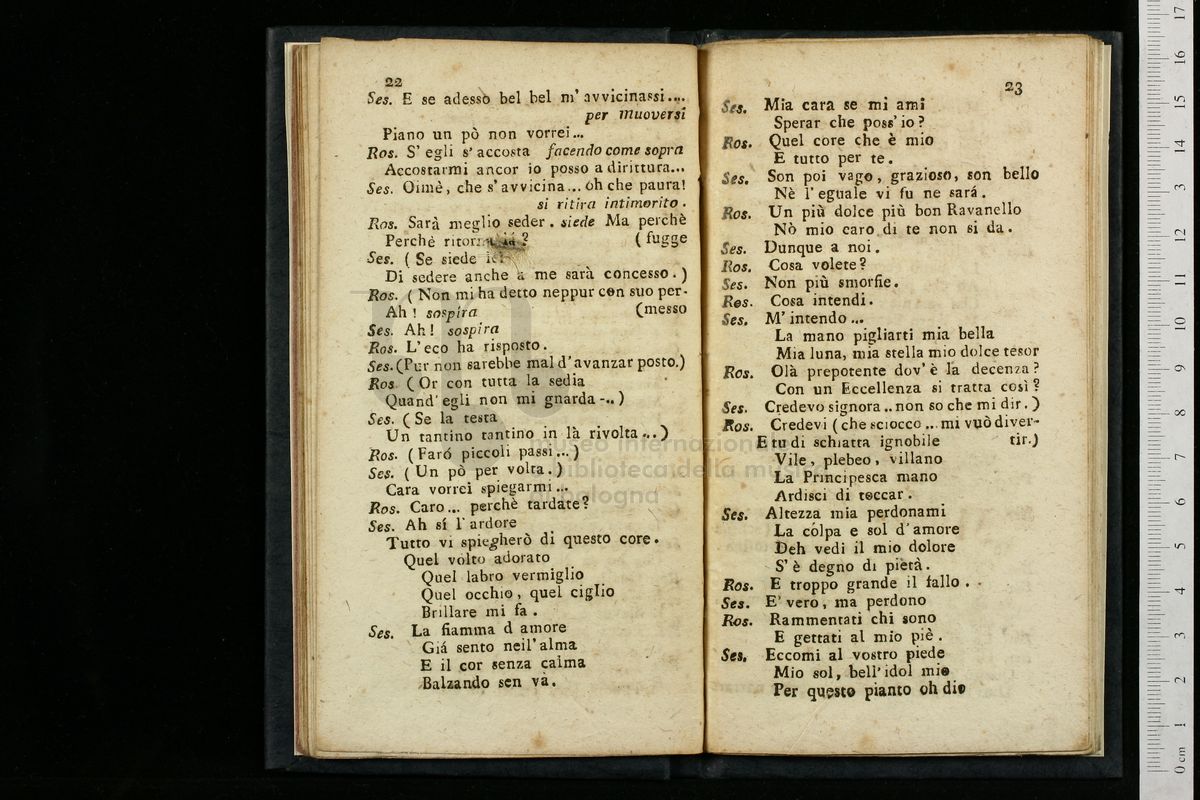 22
Ses. E se adesso bel bel m' avvicinassi....
per muoversi
Piano un pò non vorrei...
Ros. S' egli s' accosta facendo come sopra
Accostarmi ancor io posso a dirittura...
Ses. Oimè, che s' avvicina... oh che paura!
si ritira intimorito.
Ros. Sarà meglio seder. siede Ma perchè
Perchè ( fugge
Ses. ( Se siede
Di sedere anche a me sarà concesso. )
Ros. ( Non mi ha detto neppur con suo per-
Ah! sospira (messo
Ses. Ah! sospira
Ros. L' eco ha risposto.
Ses. (Pur non sarebbe mal d' avanzar posto.)
Ros. ( Or con tutta la sedia
Quand' egli non mi gnarda -.. )
Ses. ( Se la testa
Un tantino tantino in là rivolta... )
Ros. ( Faró piccoli passi... )
Ses. ( Un pò per volta. )
Cara vorrei spiegarmi...
Ros. Caro... perchè tardate?
Ses. Ah sí l' ardore
Tutto vi spiegherò di questo core.
Quel volto adorato
Quel labro vermiglio
Quel occhio, quel ciglio
Brillare mi fa.
Ses. La fiamma d amore
Giá sento neil' alma
E il cor senza calma
Balzando sen va.
23
Ses. Mia cara se mi ami
Sperar che poss' io?
Ros. Quel core che è mio
E tutto per te.
Ses. Son poi vago, grazioso, son bello
Nè l' eguale vi fu ne sará.
Ros. Un più dolce più bon Ravanello
Nò mio caro di te non si da.
Ses. Dunque a noi.
Ros. Cosa volete?
Ses. Non più smorfie.
Ros. Cosa intendi.
Ses. M' intendo...
La mano pigliarti mia bella
Mia luna, mia stella mio dolce tesor
Ros. Olà prepotente dov' è la decenza?
Con un Eccellenza si tratta così?
Ses. Credevo signora.. non so che mi dir. )
Ros. Credevi ( che sciocco... mi vuò diver-
E tu di schiatta ignobile tir.)
Vile, plebeo, villano
La Principesca mano
Ardisci di toccar.
Ses. Altezza mia perdonami
La cólpa e sol d' amore
Deh vedi il mio dolore
S' è degno di pietà.
Ros. E troppo grande il fallo.
Ses. E' vero, ma perdono
Ros. Rammentati chi sono
E gettati al mio piè.
Ses. Eccomi al vostro piede
Mio sol, bell' idol mio
Per questo pianto oh dio